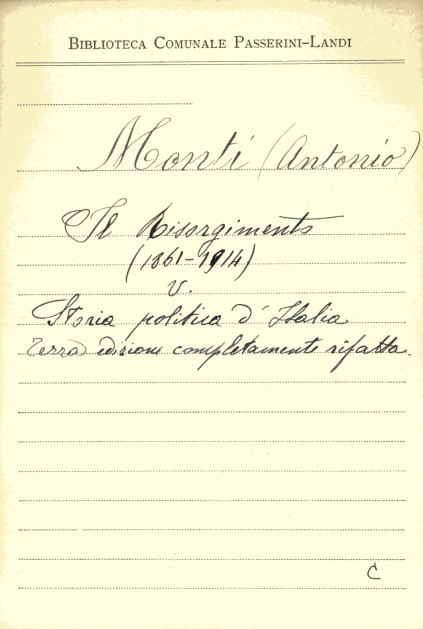 BIBLIOTECA COMUNALE PASSERINI-LANDI
Monti (Antonio)
Il Risorgimento
(1861-1914)
V.
Storia politica d'Italia
Terza edizione completamente rifatta.
C